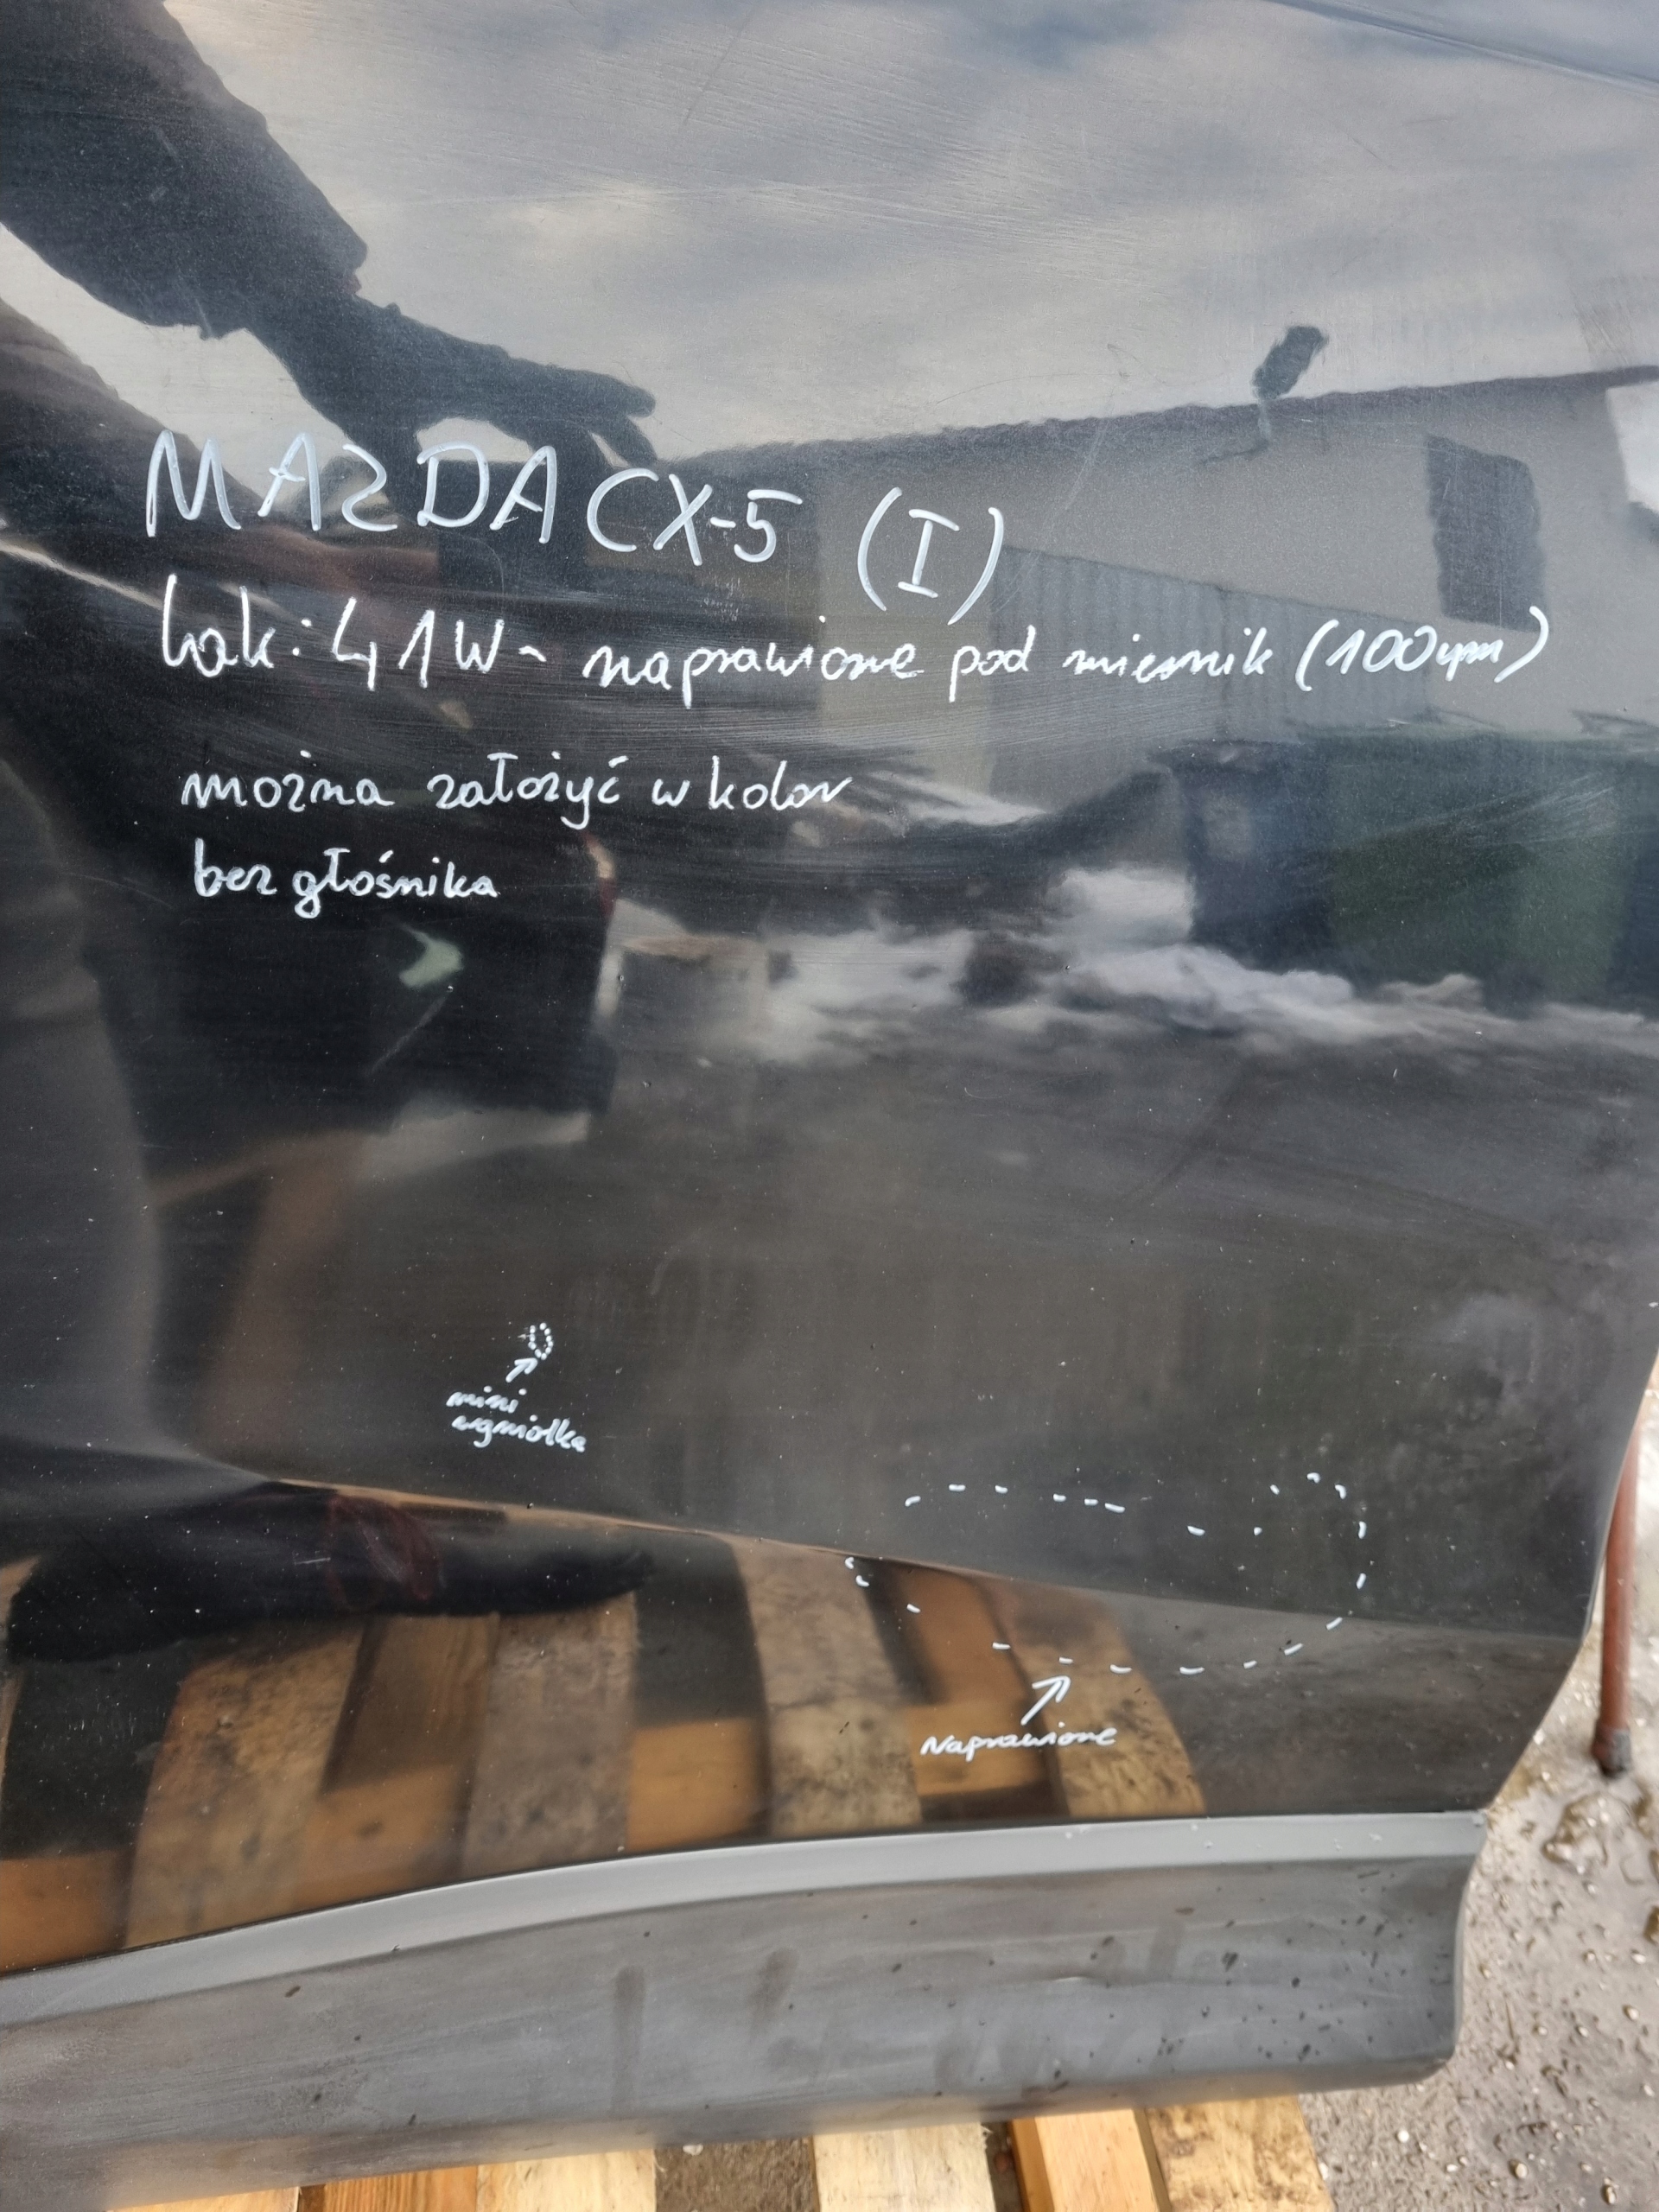 MAZDA CX-5 (I)
Lak: 41W - naprawione pod miernik (100um)
można założyć w kolor
bez głośnika
mini
wgniotka
Naprawione